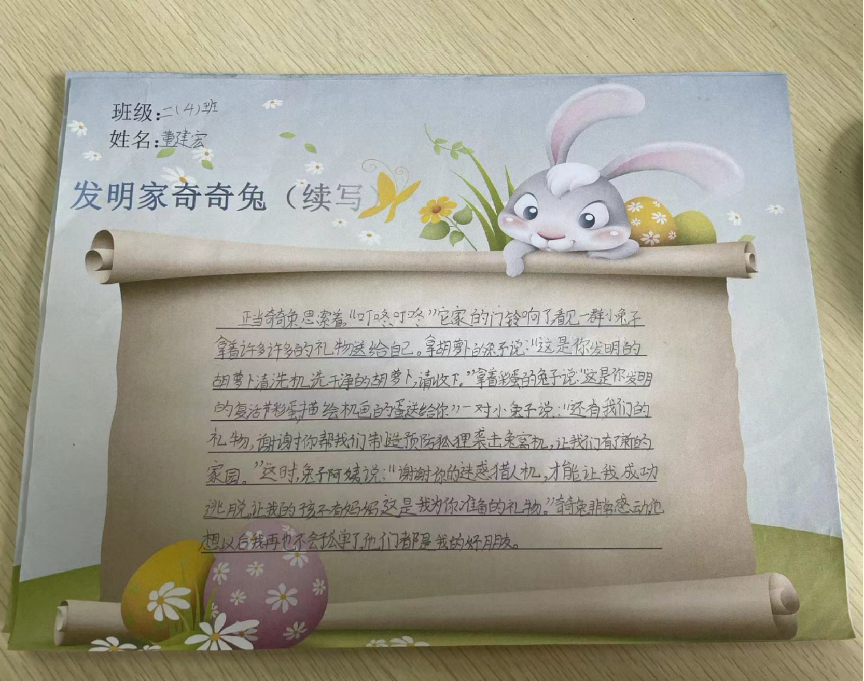 班级:二(4)班
姓名:董建宏
发明家奇奇兔（续写）
正当奇奇兔思索着,“叮咚叮咚”它家的门铃响了看见一群小兔子
拿着许多许多的礼物送给自己。拿胡萝卜的兔子说:“这是你发明的
胡萝卜清洗机洗干净的胡萝卜,请收下。”拿着彩蛋的兔子说:“这是你发明
的复活节彩蛋描绘机画的蛋送给你”一对小兔子说:“还有我们的
礼物,谢谢你帮我们制造预防狐狸袭击兔窝机,让我们有了新的
家园。”这时,兔子阿姨说:“谢谢你的迷惑猎人机,才能让我成功
逃脱,让我的孩子有妈妈,这是我为你准备的礼物。”奇奇兔非常感动他
想以后我再也不会孤单了,他们都是我的好朋友。